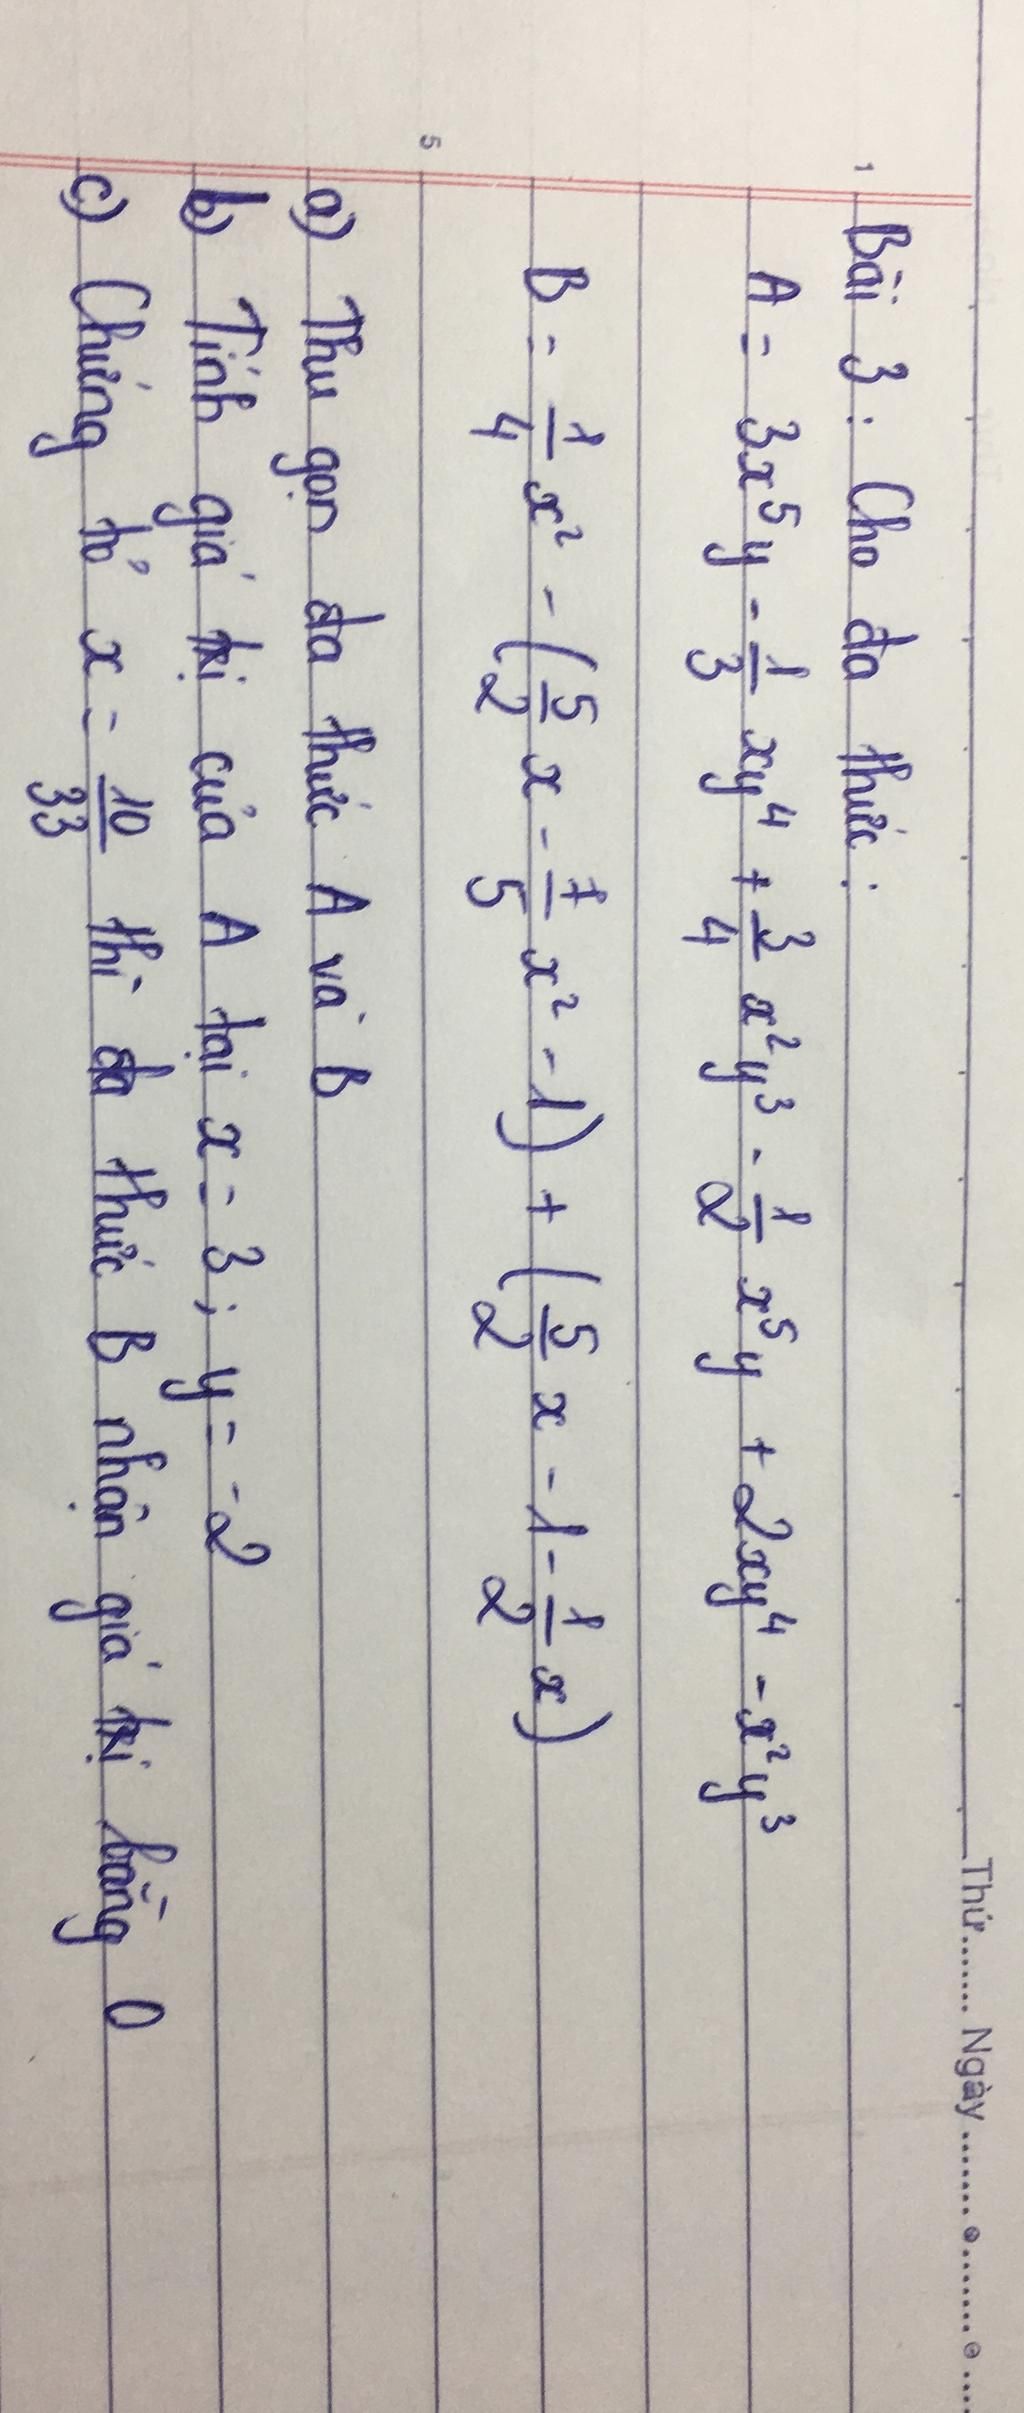 Thứ....... Ngày ................
1
Bài 3 : Cho đa thức :
A = 3x⁵y - 1/3 xy⁴ + 3/4 x²y³ - 1/2 x⁵y + 2xy⁴ - x²y³
B = 1/4 x² - (5/2 x - 7/5 x² - 1) + (5/2 x - 1 - 1/2 x)
5
a) Thu gọn đa thức A và B
b) Tính giá trị của A tại x = 3 ; y = -2
c) Chứng tỏ x = 10/33 thì đa thức B nhận giá trị bằng 0